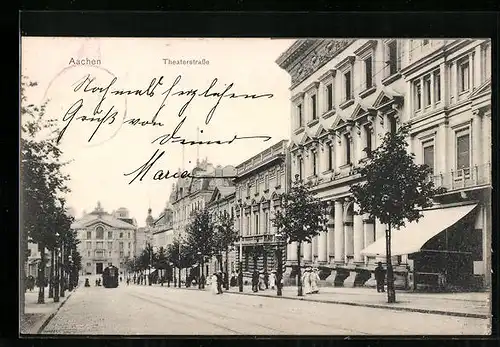 Aachen
Theaterstraße
Nochmals herzlichen
Gruß von Deiner
Maria